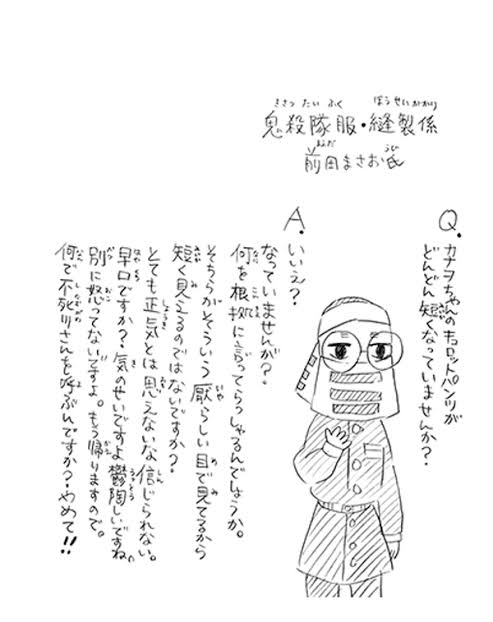 鬼殺隊服・縫製係
前田まさお氏
Q. カナヲちゃんのキュロットパンツが
どんどん短くなっていませんか?
A. いいえ?
なっていませんが?
何を根拠に言ってらっしゃるんでしょうか。
そちらがそういう厭らしい目で見てるから
短く見えるのではないですか?
とても正気とは思えないな信じられない。
早口ですか?気のせいですよ鬱陶しいですね。
別に怒ってないですよ。もう帰りますので。
何で不死川さんを呼ぶんですか?やめて!!